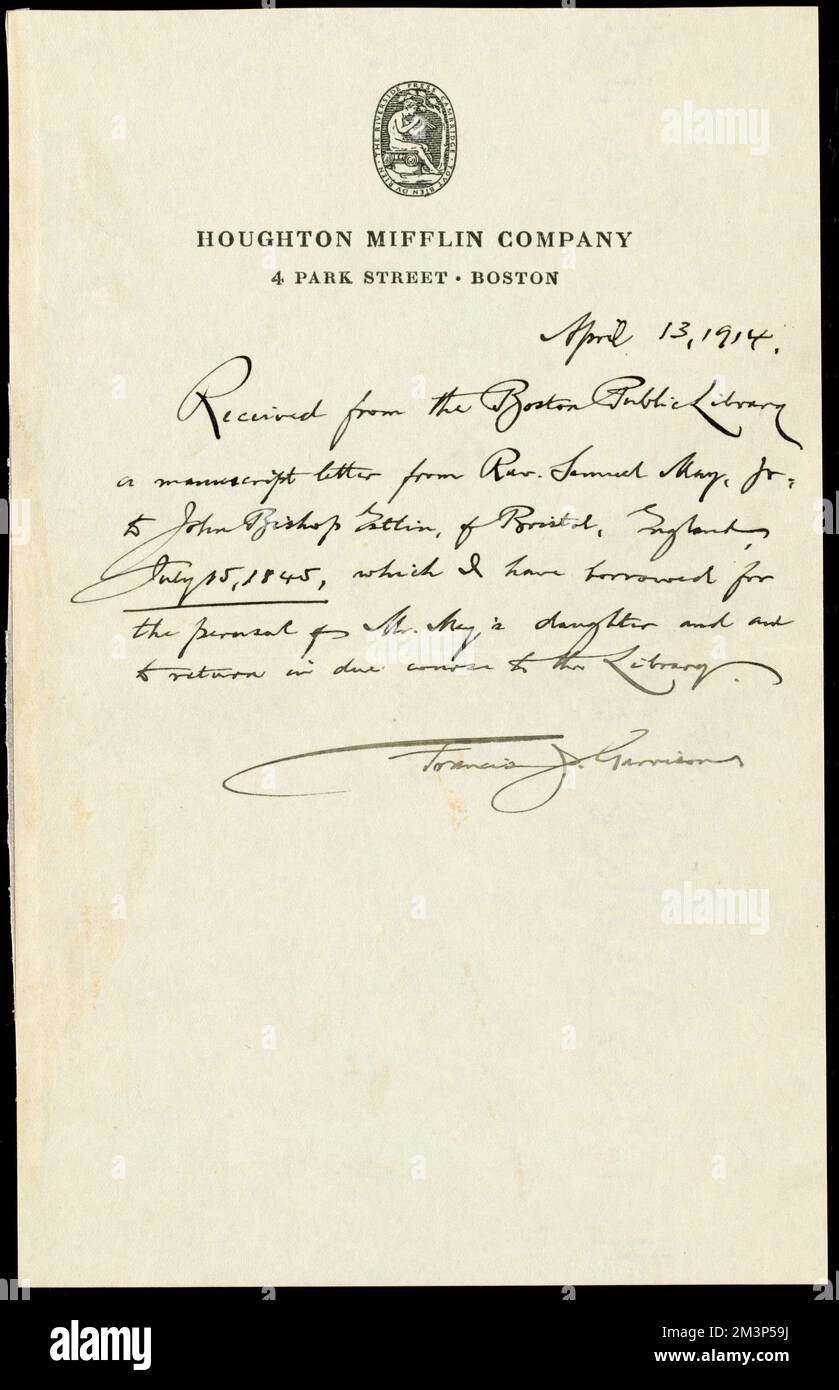 THE RIVERSIDE PRESS CAMBRIDGE · TOVT BIEN OV RIEN ·
HOUGHTON MIFFLIN COMPANY
4 PARK STREET · BOSTON
April 13, 1914.
Received from the Boston Public Library
a manuscript letter from Rev. Samuel May, Jr.
to John Bishop Estlin, of Bristol, England,
July 15, 1845, which I have borrowed for
the perusal of Mr. May's daughter and am
to return in due course to the Library.
Francis J. Garrison
alamy
Image ID: 2M3P59J
www.alamy.com